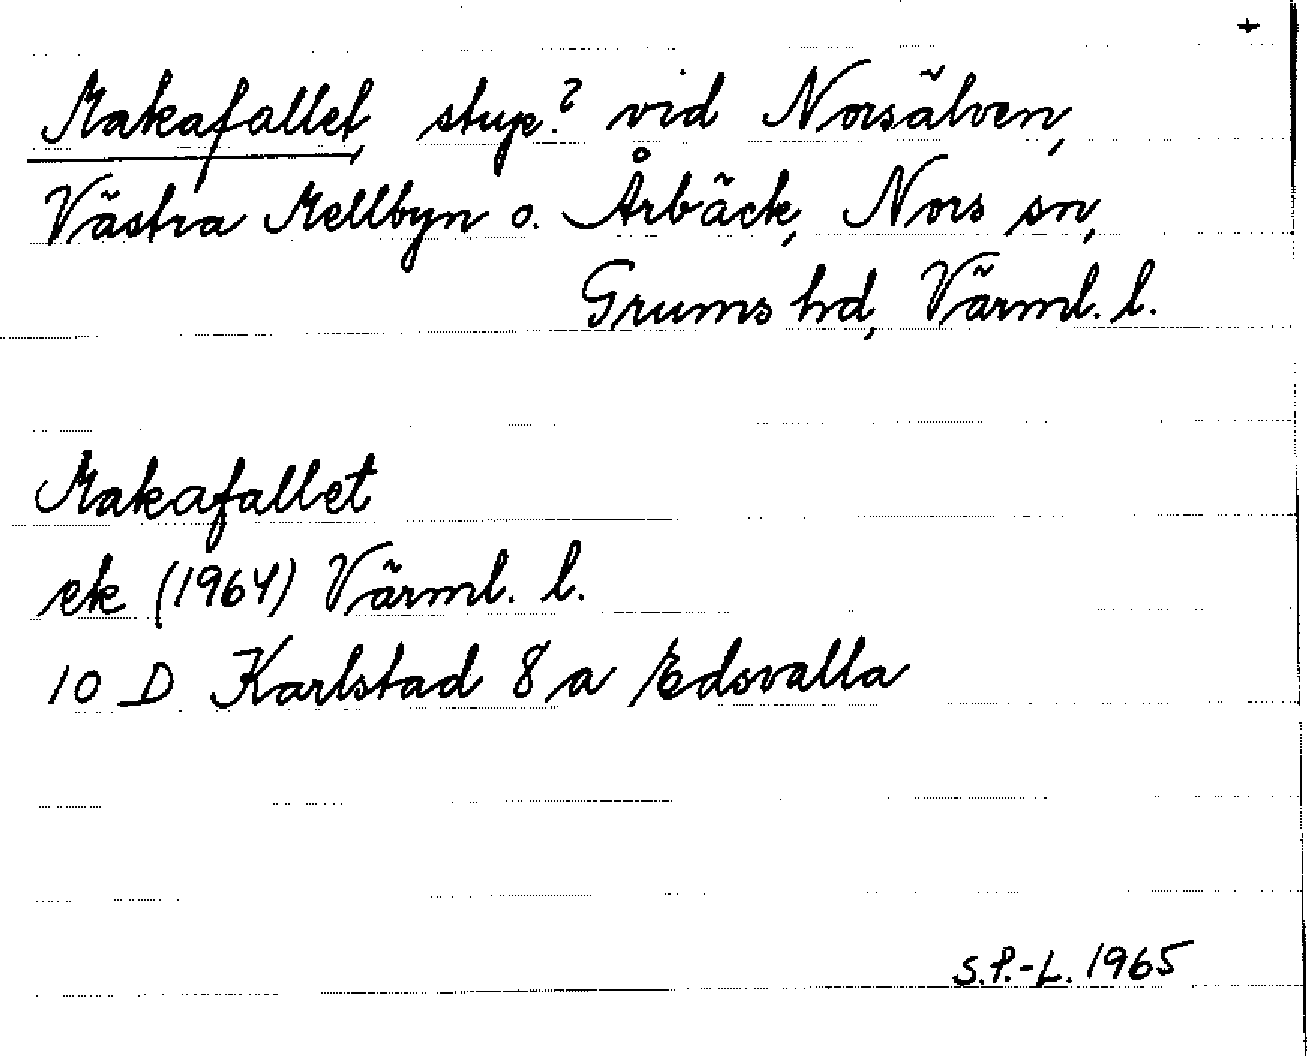 +
Makafallet, stup? vid Norsälven,
Västra Mellbyn o. Årbäck, Nors sn,
Grums hd, Värml. l.
Makafallet
ek (1964) Värml. l.
10 D Karlstad 8 a Edsvalla
S.P.-L. 1965